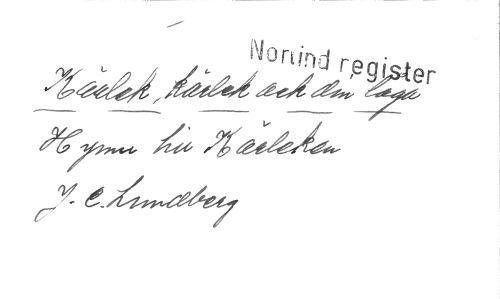 Norrind register
Kärlek, kärlek och din låga
Hymn till Kärleken
J. C. Lundberg